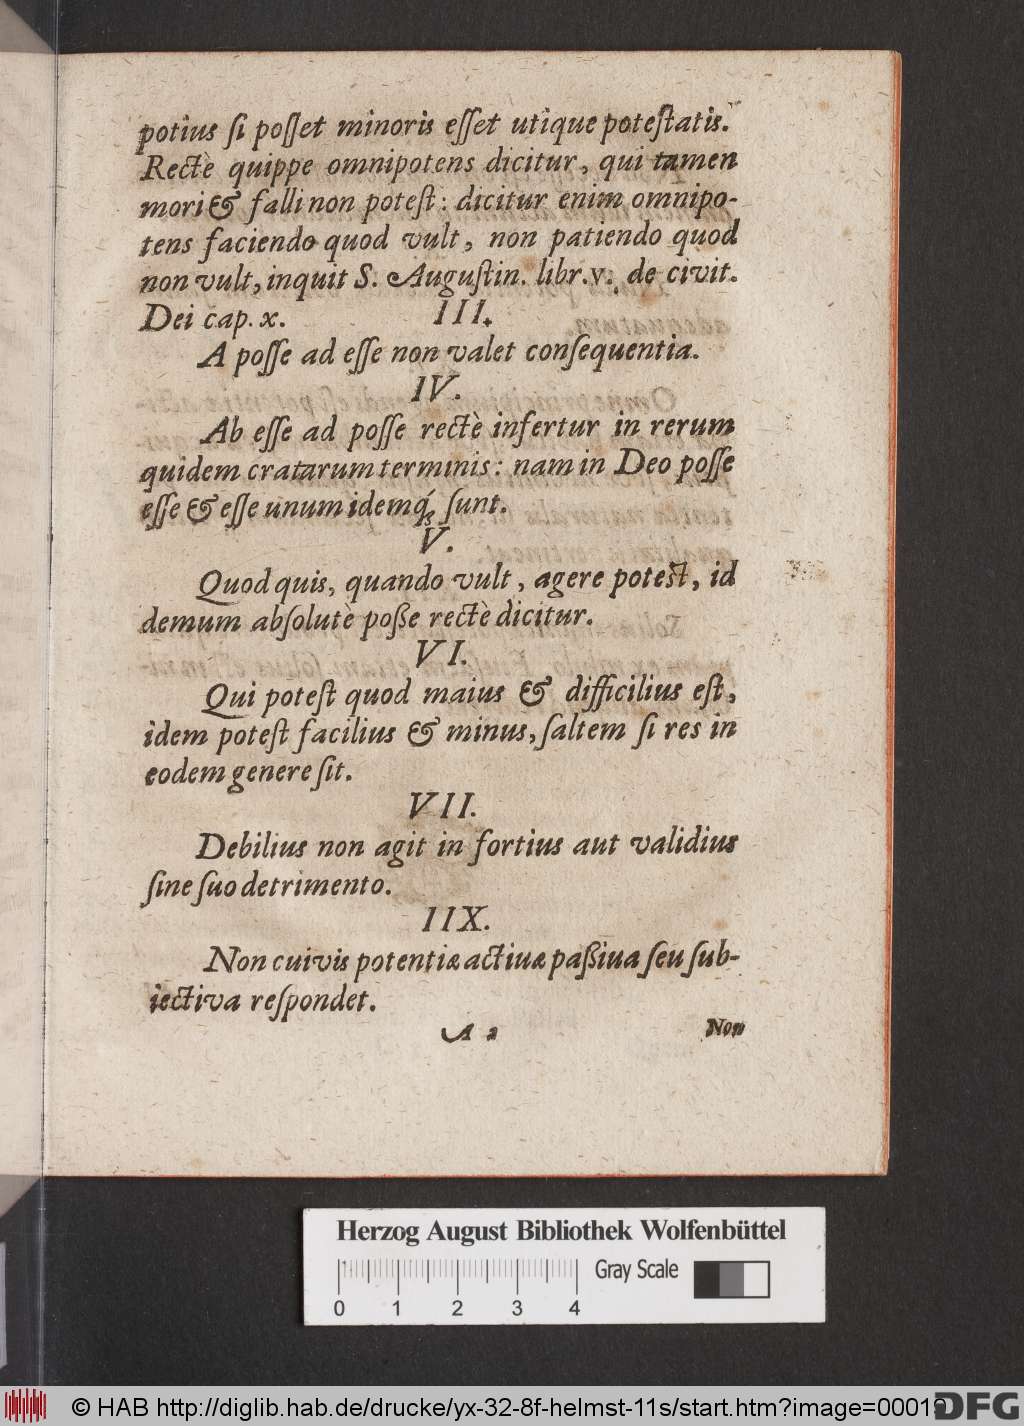 potius ſi poſſet minoris eſſet utique poteſtatis.
Rectè quippe omnipotens dicitur, qui tamen
mori & falli non poteſt: dicitur enim omnipo-
tens faciendo quod vult, non patiendo quod
non vult, inquit S. Auguſtin. libr. v. de civit.
Dei cap. x. III.
A poſſe ad eſſe non valet conſequentia.
IV.
Ab eſſe ad poſſe rectè infertur in rerum
quidem cratarum terminis: nam in Deo poſſe
eſſe & eſſe unum idemq́; ſunt.
V.
Quod quis, quando vult, agere poteſt, id
demum abſolutè poße rectè dicitur.
VI.
Qui poteſt quod maius & difficilius eſt,
idem poteſt facilius & minus, ſaltem ſi res in
eodem genere ſit.
VII.
Debilius non agit in fortius aut validius
ſine ſuo detrimento.
IIX.
Non cuivis potentiæ actiuæ paßiua ſeu ſub-
iectiva reſpondet.
A 2 Non
Herzog August Bibliothek Wolfenbüttel
Gray Scale
0 1 2 3 4
© HAB http://diglib.hab.de/drucke/yx-32-8f-helmst-11s/start.htm?image=00019
DFG